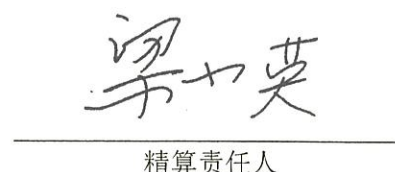 梁少英
精算责任人